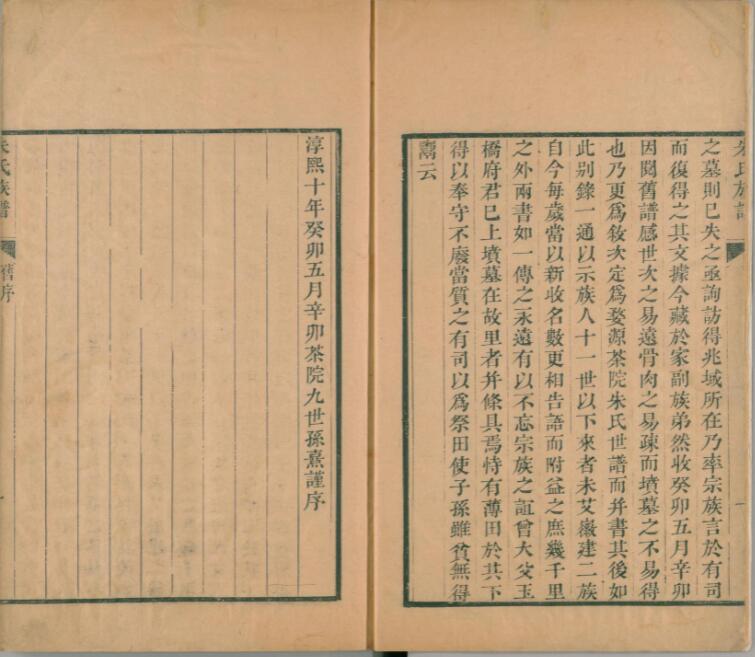 朱氏族譜
之墓則已失之亟詢訪得兆域所在乃率宗族言於有司
而復得之其文據今藏於家副族弟然收癸卯五月辛卯
因閱舊譜感世次之易遠骨肉之易疎而墳墓之不易得
也乃更為敘次定為婺源茶院朱氏世譜而并書其後如
此別錄一通以示族人十一世以下來者未艾徽建二族
自今每歲當以新收名數更相告語而附益之庶幾千里
之外兩書如一傳之永遠有以不忘宗族之誼曾大父王
橋府君已上墳墓在故里者并條具焉恃有薄田於其下
得以奉守不廢當質之有司以為祭田使子孫雖貧無得
鬻云
淳熙十年癸卯五月辛卯茶院九世孫熹謹序
朱氏族譜
舊序